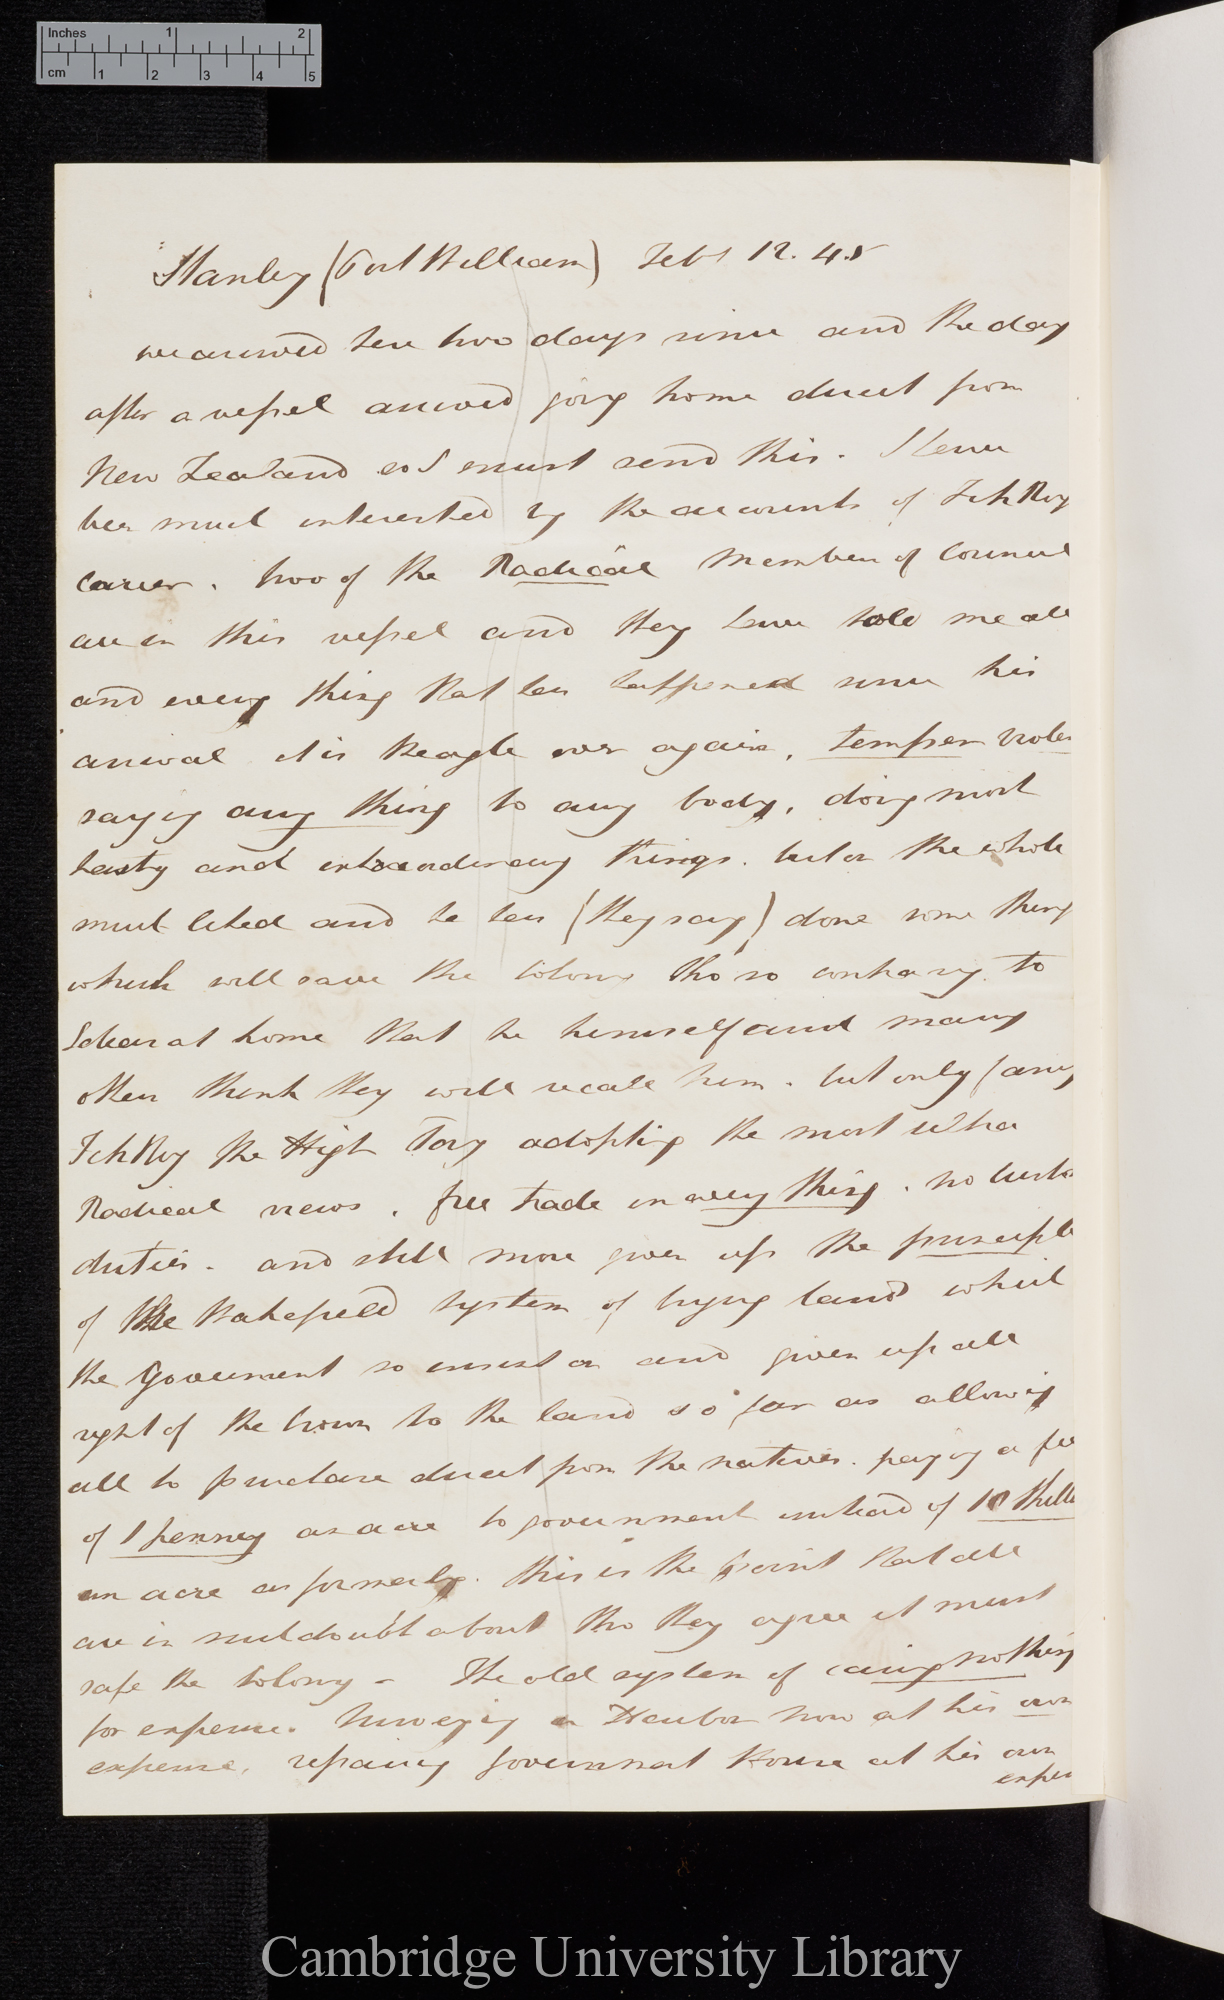 Inches 1 2
cm 1 2 3 4 5
Stanley (Port William) Feby 12. 45
we arrived here two days since and the day
after a vessel arrived going home direct from
New Zealand so I must send this. I have
been much interested by the accounts of FitzRoy
career. two of the Radical Members of Council
are in this vessel and they have told me all
and every thing that has happened since his
arrival it is Beagle over again, temper violen
saying any thing to any body, doing most
hasty and extraordinary things. but on the whole
much liked and he has (they say) done some thing
which will save the Colony tho so contrary to
Ideas at home that he himself and many
others think they will recall him. but only fancy
FitzRoy the High Tory adopting the most Ultra
Radical views, free trade in every thing. no custo
duties. and still more given up the principle
of the Wakefield system of buying land which
the Government so insist on and given up all
right of the Crown to the land so far as allowing
all to purchase direct from the natives. paying a fee
of 1 penny an acre to government instead of 10 Shilli
an acre as formerly. this is the point that all
are in such doubt about tho they agree it must
safe the Colony – The old system of caring nothing
for expense. Surveying a Harbor now at his own
expense, repairing Government House at his own
expen
Cambridge University Library